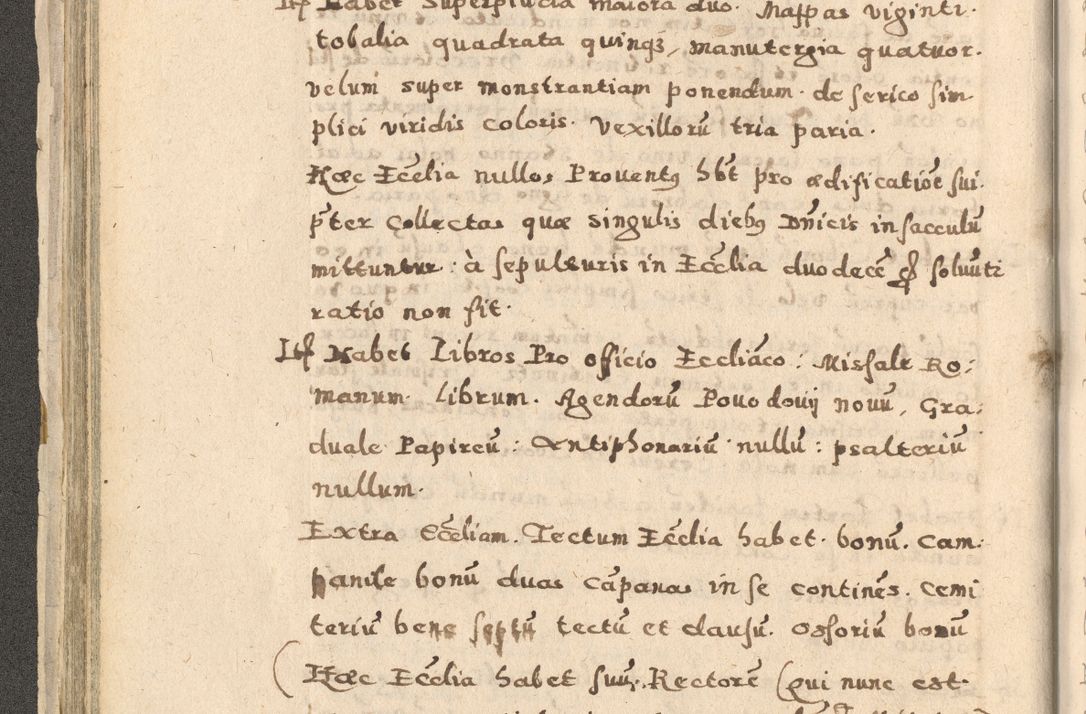 Itp Habet Superpilicia maiora duo. Mappas viginti.
tobalia quadrata quinqz, manutergia quatuor.
velum super monstrantiam ponendum. de serico sim
plici viridis coloris. Vexillorū tria paria.
Hæc Ecclia nullos Proventq hbt pro ædificatiōe sui.
p̄ter Collectas quæ singulis diebq Dn̄icis in sacculū
mittuntur: à sepulturis in Ecclia duodecē fl soluūt:
ratio non fit.
Itp Habet Libros Pro officio Eccliāco: Missale Ro:
manum. Librum. Agendorū novū, Gra:
duale Papireū: Antiphonariū nullū: psalteriū
nullum.
Extra Eccliam. Tectum Ecclia habet. bonū. Cam:
panile bonū duas cāpanas in se continēs. Cemi
teriū bene septū tectū et clausū. Ossoriū bonū
(Hæc Ecclia habet suū. Rectorē (qui nunc est.